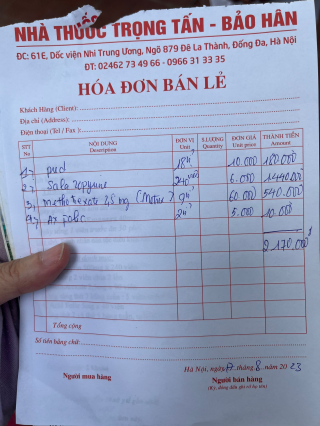 NHÀ THUỐC TRỌNG TẤN - BẢO HÂN
ĐC: 61E, Dốc viện Nhi Trung Ương, Ngõ 879 Đê La Thành, Đống Đa, Hà Nội
ĐT: 02462 73 49 66 - 0966 31 33 35
HÓA ĐƠN BÁN LẺ
Khách Hàng (Client):
Địa chỉ (Address):
Điện thoại (Tel / Fax ):
STT No NỘI DUNG Description ĐƠN VỊ Unit S.LƯỢNG Quantity ĐƠN GIÁ Unit price THÀNH TIỀN Amount
1, pred 18h 10.000 180.000
2, Salazopyrine 240 6.000 1440.000
3, methotrexate 2,5 mg 9h 60.000 540.000
4, folic 2h 5.000 10.000
2.170.000đ
Tổng cộng
Số tiền bằng chữ:
Hà Nội, ngày 17 tháng 8 năm 2023
Người mua hàng Người bán hàng
(Ký, đóng dấu ghi rõ họ tên)